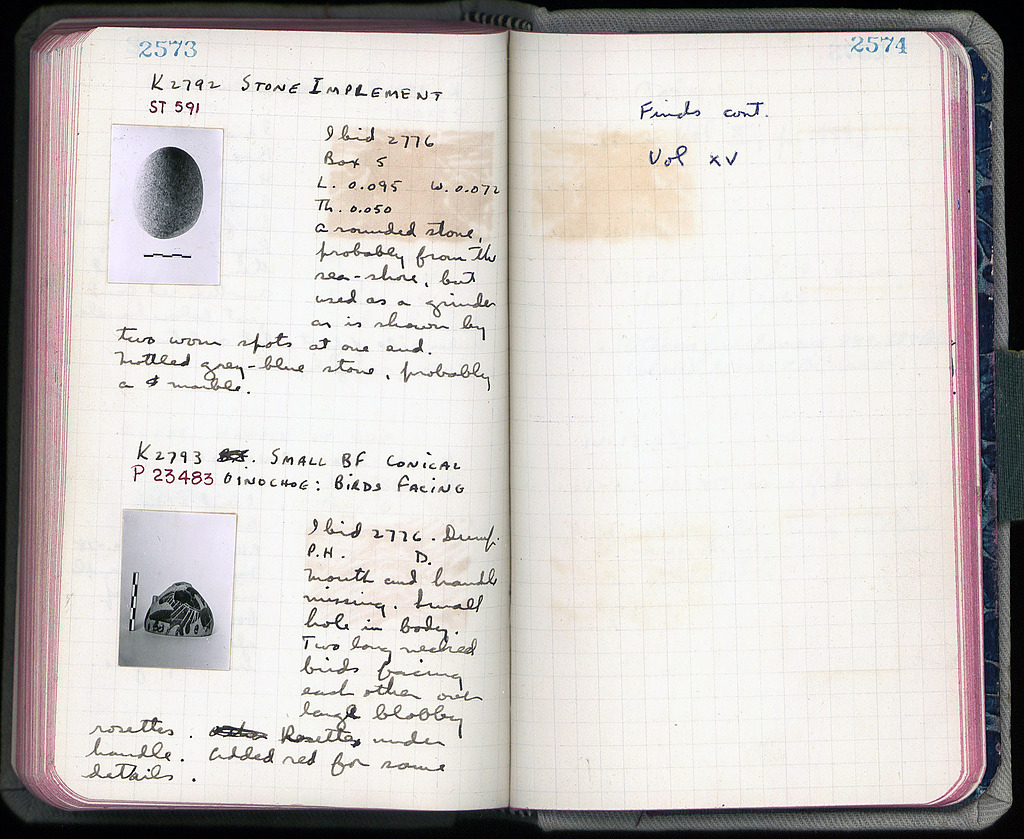 2573
K2792 STONE IMPLEMENT
ST 591
Ibid 2776
Box 5
L. 0.095 W. 0.072
Th. 0.050
a rounded stone,
probably from the
sea-shore, but
used as a grinder
as is shown by
two worn spots at one end.
Mottled grey-blue stone, probably
a marble.
K2793 . SMALL BF CONICAL
P 23483 OINOCHOE: BIRDS FACING
Ibid 2776. Dump.
P.H. D.
Mouth and handle
missing. Small
hole in body.
Two long necked
birds facing
each other over
large blobby
rosettes. Rosettes under
handle. Added red for some
details.
2574
Finds cont.
Vol XV